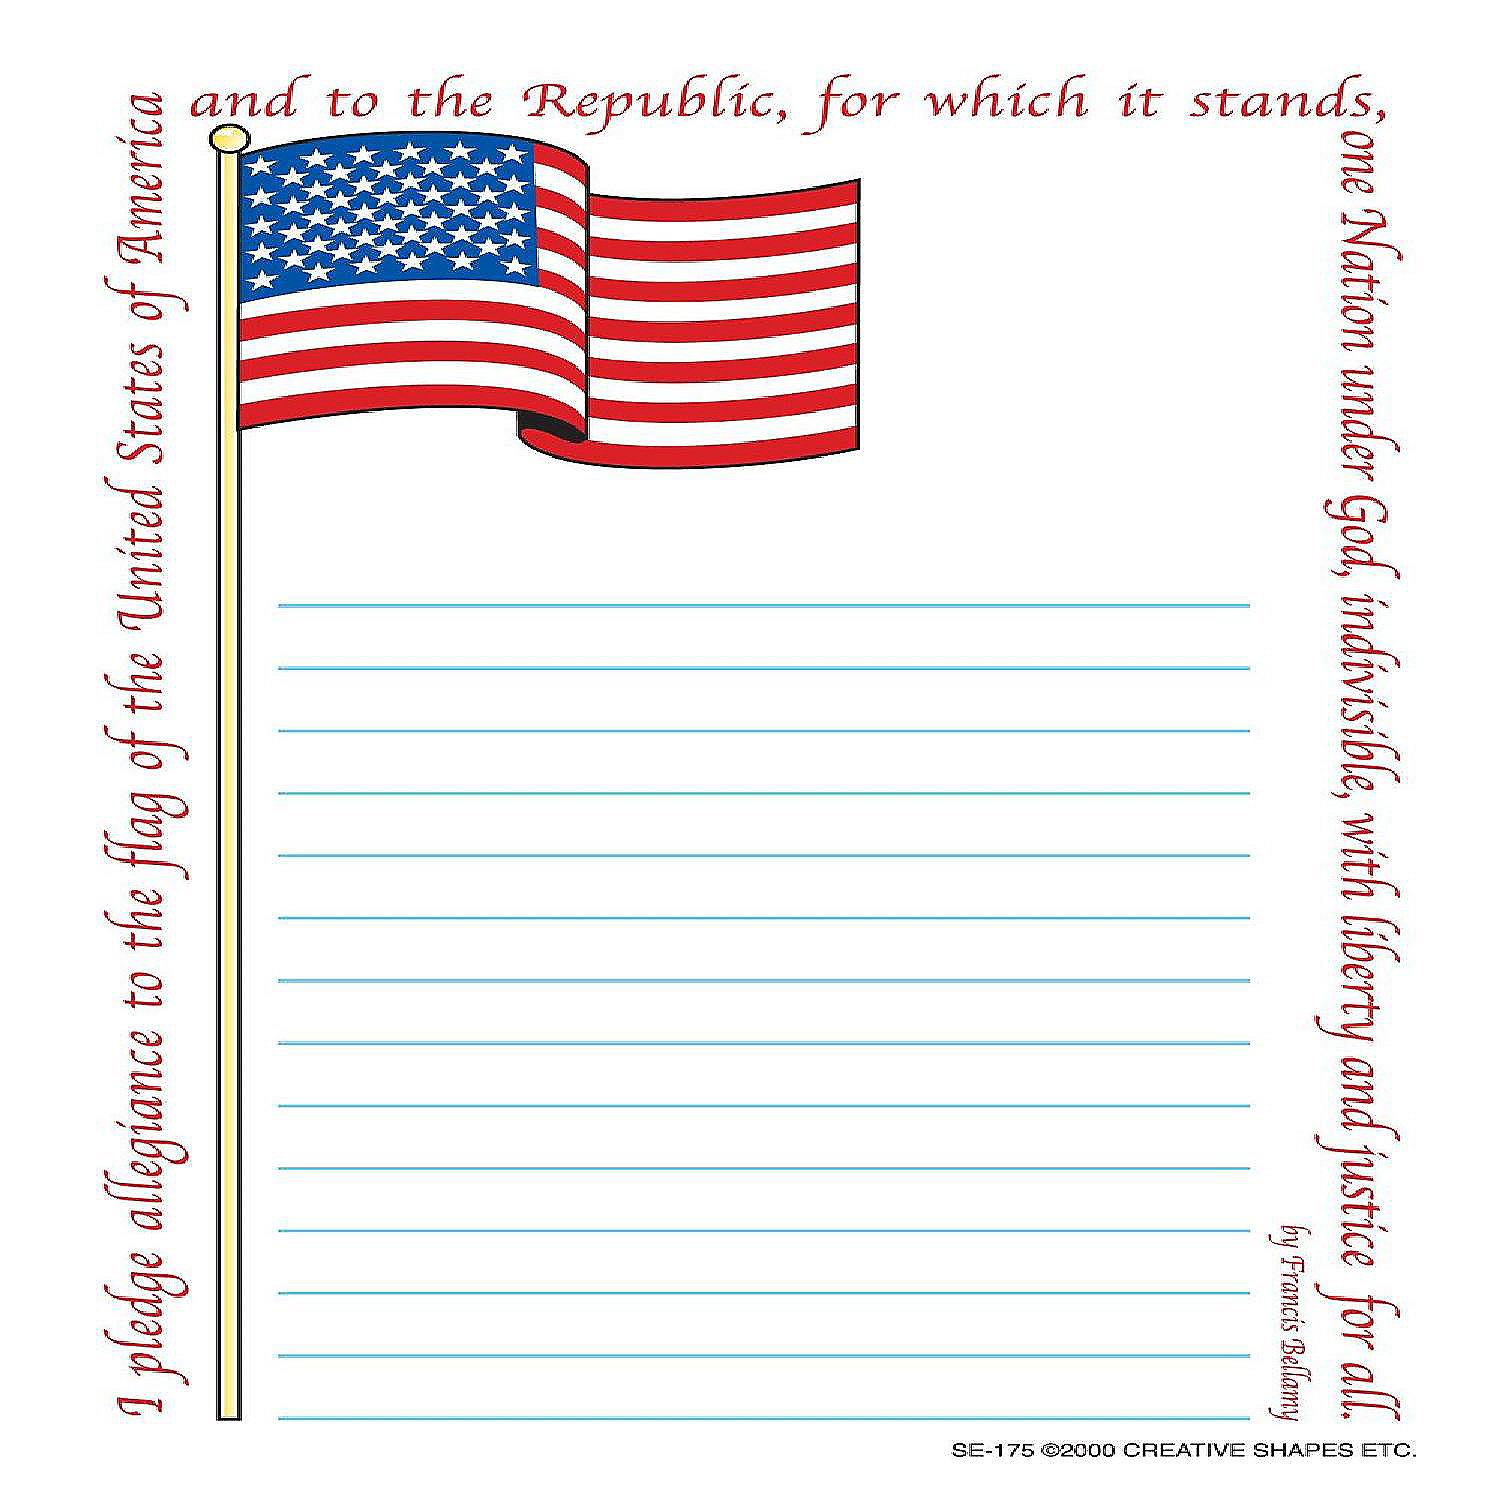 I pledge allegiance to the flag of the United States of America
and to the Republic, for which it stands,
one Nation under God, indivisible, with liberty and justice for all.
by Francis Bellamy
SE-175 ©2000 CREATIVE SHAPES ETC.